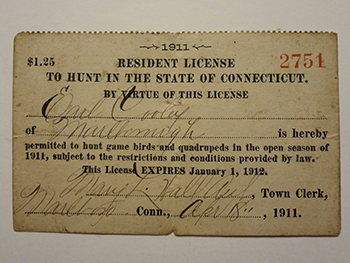 1911
$1.25 RESIDENT LICENSE 2751
TO HUNT IN THE STATE OF CONNECTICUT.
BY VIRTUE OF THIS LICENSE
Earl Cooley
of Marlborough is hereby
permitted to hunt game birds and quadrupeds in the open season of
1911, subject to the restrictions and conditions provided by law.
This License EXPIRES January 1, 1912.
Mary L. Hall, Town Clerk,
Marlboro, Conn., Apr 18, 1911.